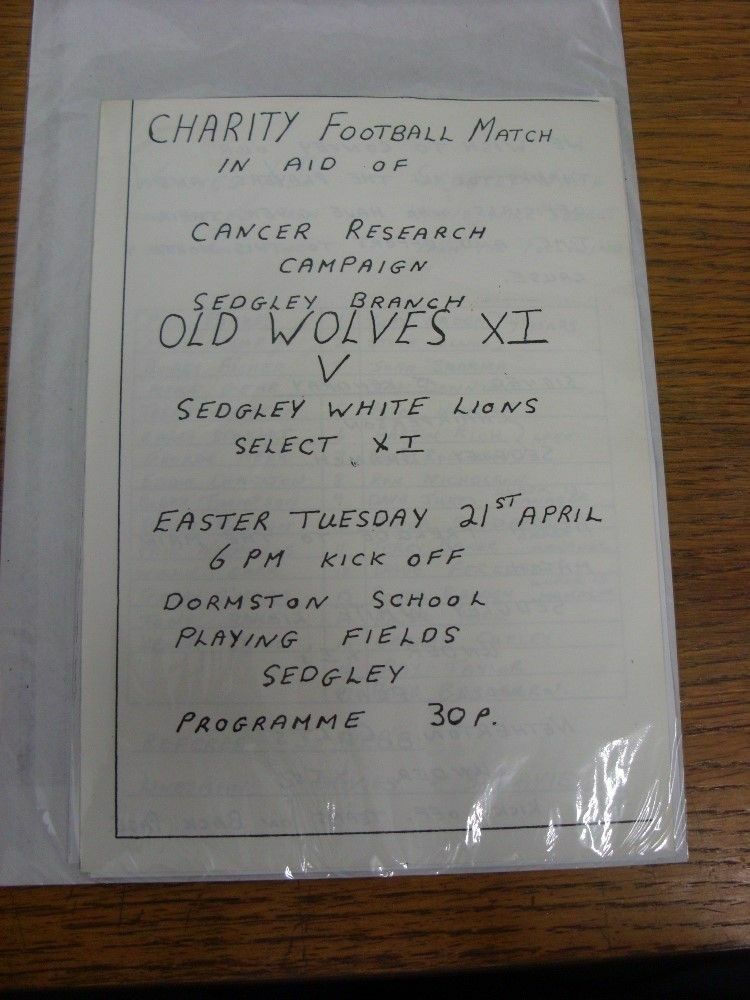 CHARITY FOOTBALL MATCH
IN AID OF
CANCER RESEARCH
CAMPAIGN
SEDGLEY BRANCH
OLD WOLVES XI
V
SEDGLEY WHITE LIONS
SELECT XI
EASTER TUESDAY 21ST APRIL
6 PM KICK OFF
DORMSTON SCHOOL
PLAYING FIELDS
SEDGLEY
PROGRAMME 30P.